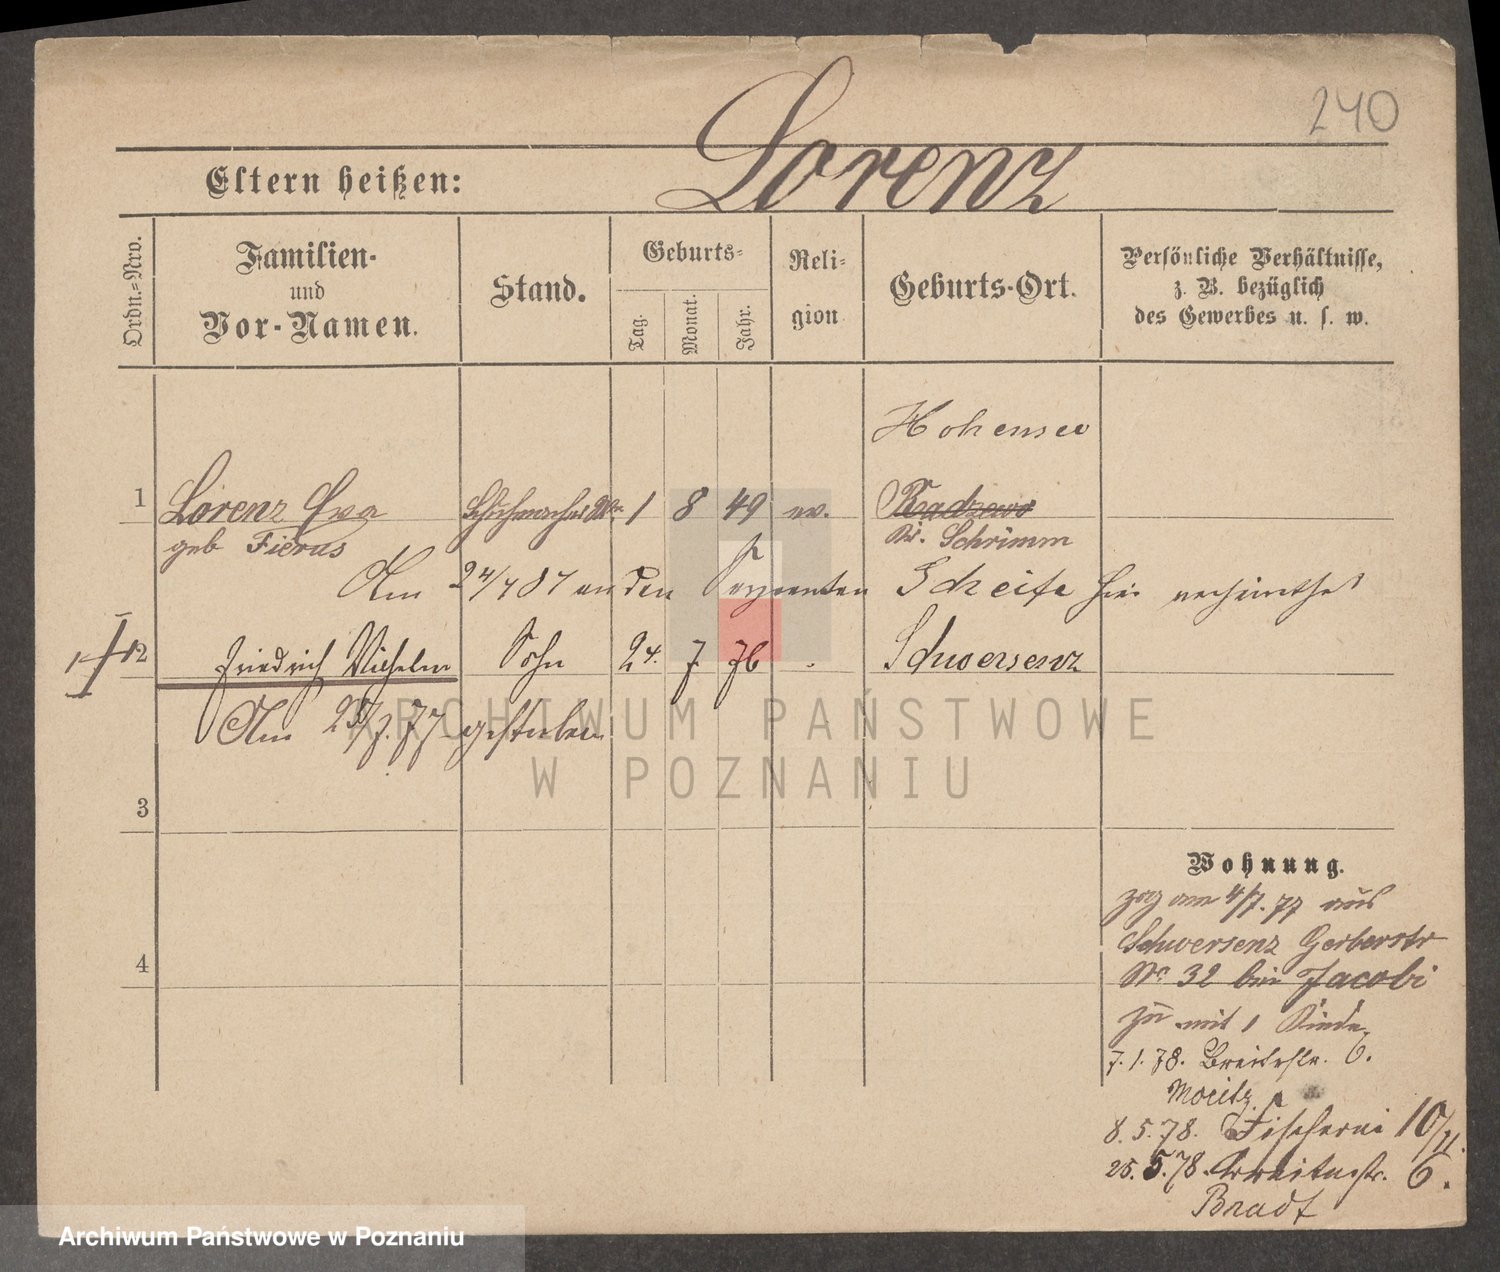 240
Eltern heißen: Lorenz
Ordn.=Nro.
Familien-
und
Vor-Namen.
Stand.
Geburts=
Tag.
Monat.
Jahr.
Reli-
gion
Geburts-Ort.
Persönliche Verhältnisse,
z. B. bezüglich
des Gewerbes u. s. w.
Hohensee
1 Lorenz Eva Schuhmacher 1 8 49 ev. Radzewo
geb Fierus Kr. Schrimm
Am 24/7 87 an den Sergenten Scheife hier verheirathet
2 Friedrich Wilhelm Sohn 24. 7. 76 Schwersenz
Am 25/7. 77 gestorben
ARCHIWUM PAŃSTWOWE
W POZNANIU
3
4
Wohnung.
zog am 4/7. 77 aus
Schwersenz Gerberstr
No 32 bei Jacobi
zu mit 1 Kinde.
7. 1. 78. Breitestr. 6.
Moritz
8. 5. 78. Fischerei 10/11.
25. 5. 78. Breitestr. 6.
Bradt
Archiwum Państwowe w Poznaniu